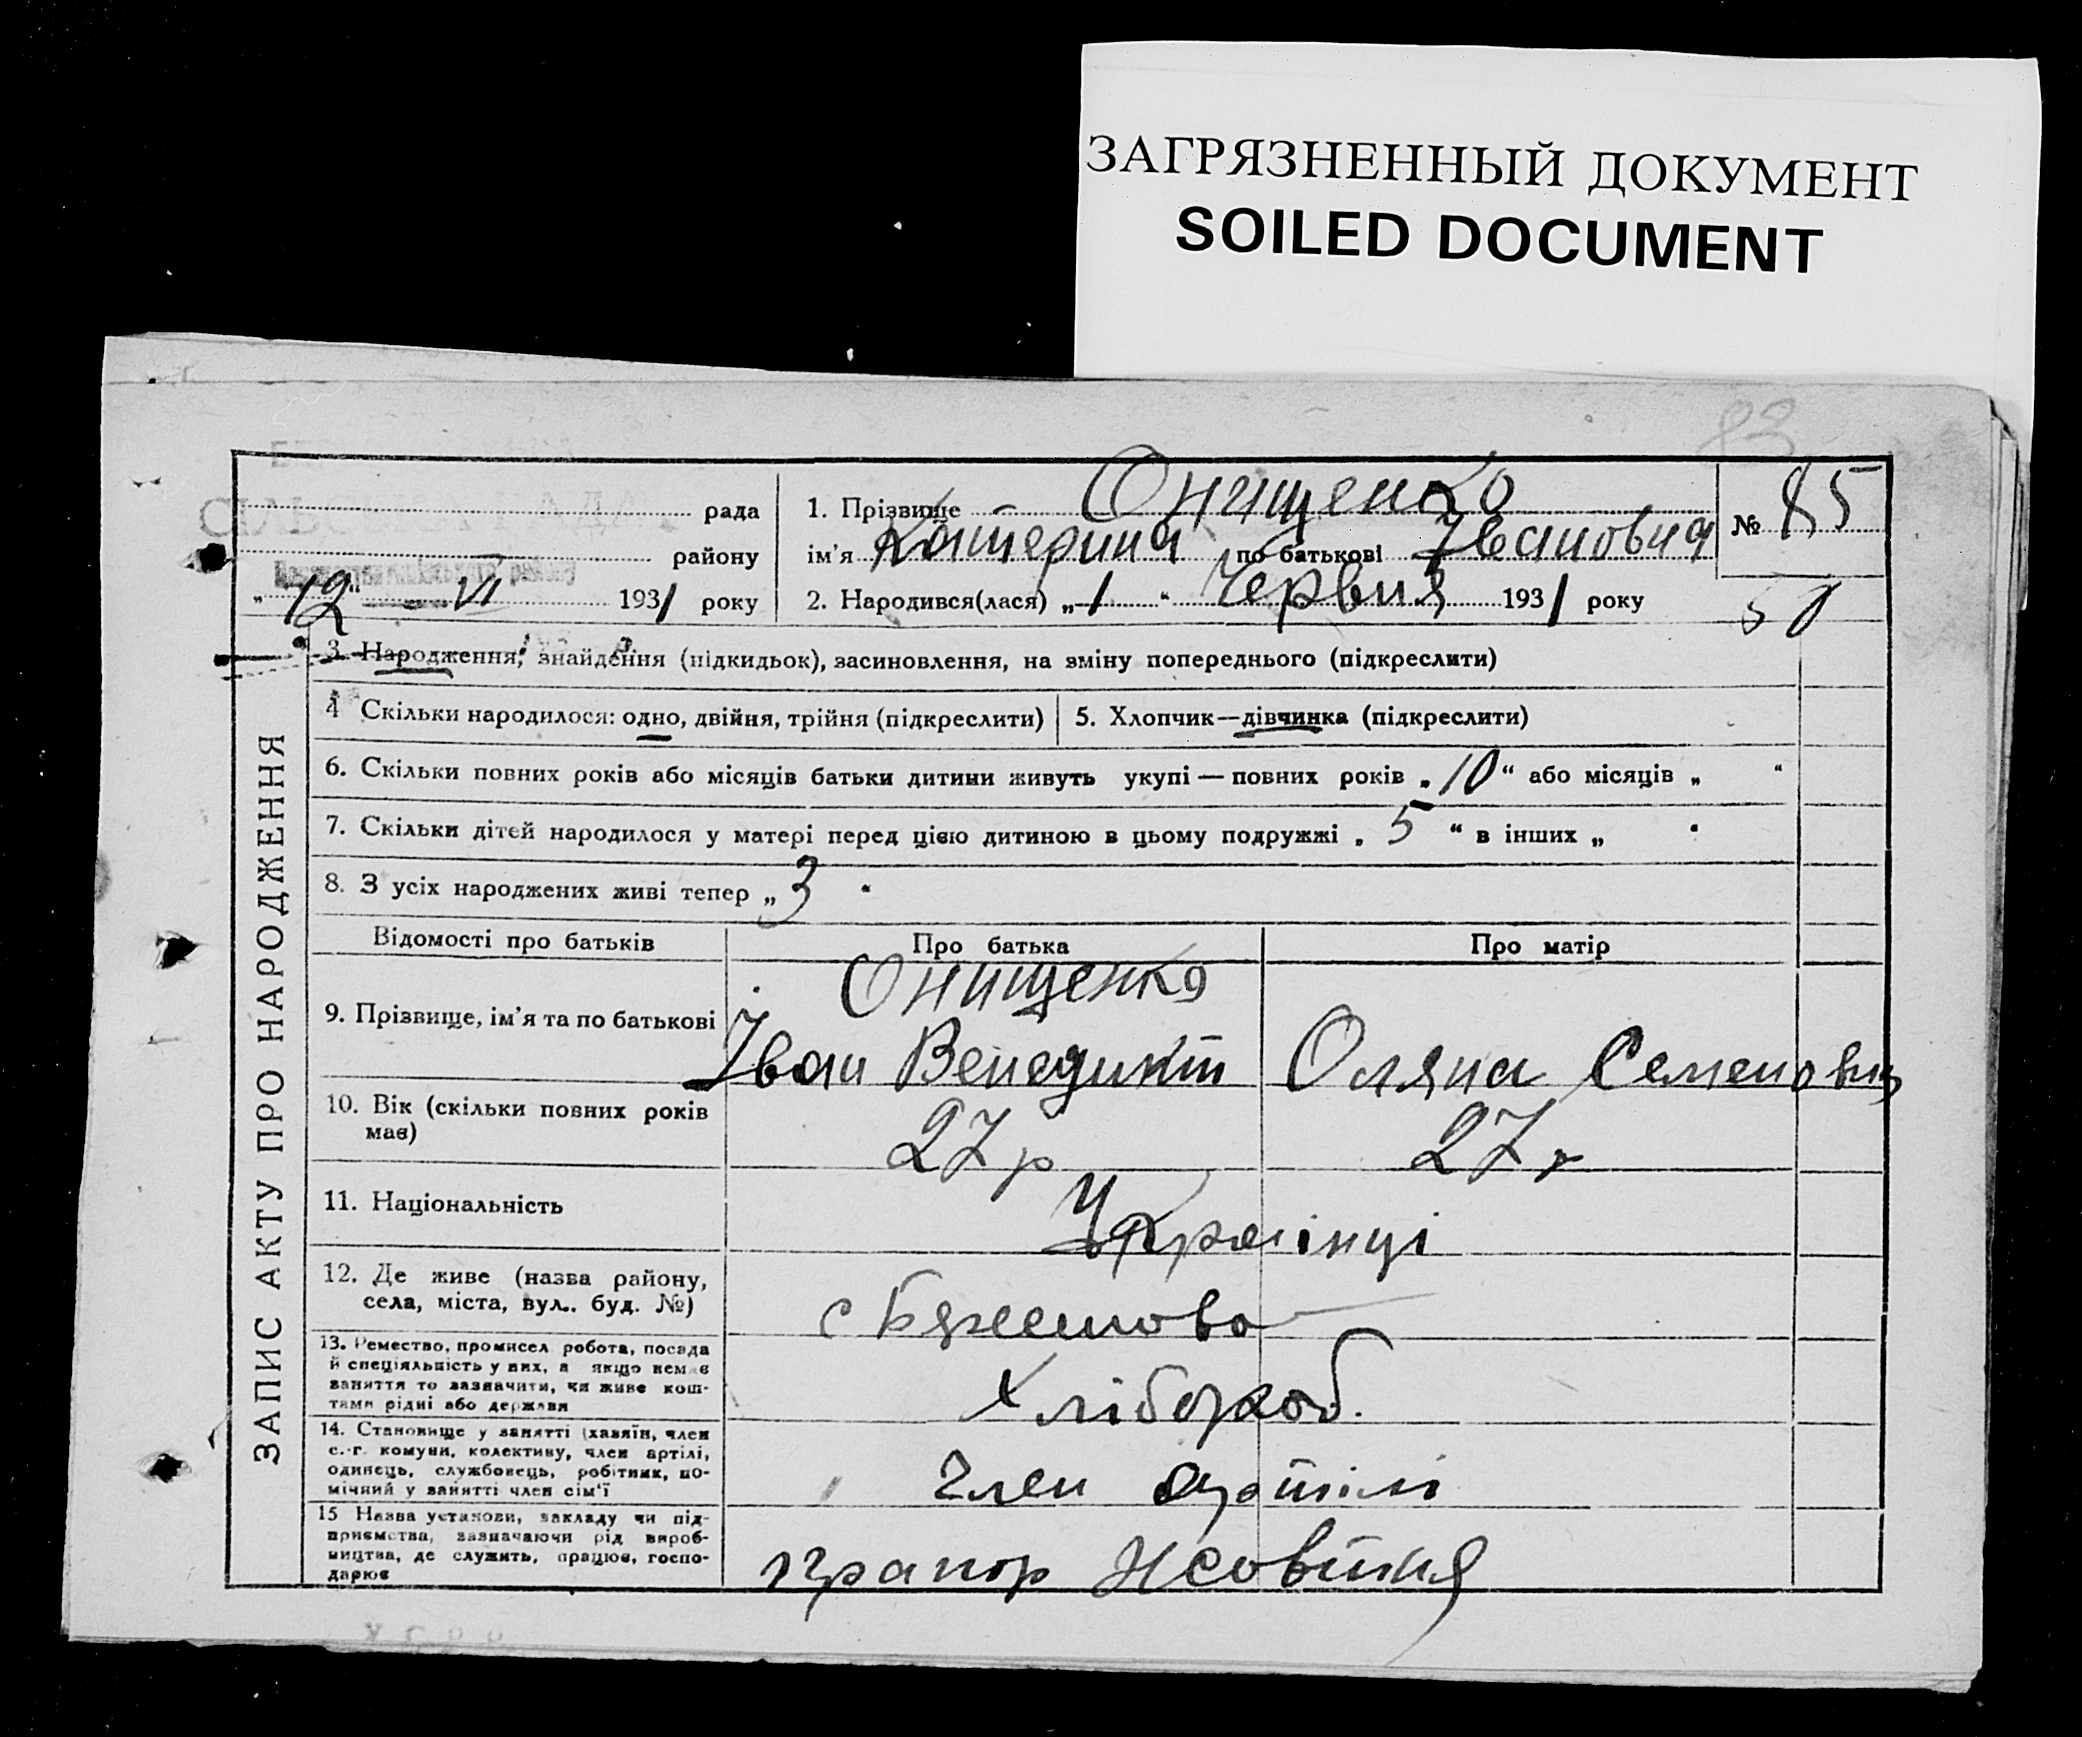 ЗАГРЯЗНЕННЫЙ ДОКУМЕНТ
SOILED DOCUMENT
рада
району
„12“ VI 1931 року
1. Прізвище Онищенко
ім’я Катерина по батькові Івановна
2. Народився(лася) „1“ Червня 1931 року
№ 85
ЗАПИС АКТУ ПРО НАРОДЖЕННЯ
3. Народження, знайдення (підкидьок), засиновлення, на зміну попереднього (підкреслити)
4 Скільки народилося: одно, двійня, трійня (підкреслити)
5. Хлопчик—дівчинка (підкреслити)
6. Скільки повних років або місяців батьки дитини живуть укупі — повних років „10“ або місяців „ “
7. Скільки дітей народилося у матері перед цією дитиною в цьому подружжі „ 5 “ в інших „ “
8. З усіх народжених живі тепер „3“
Відомості про батьків
Про батька
Про матір
9. Прізвище, ім’я та по батькові
Онищенко
Іван Венедикт
Оляна Семеновна
10. Вік (скільки повних років має)
27 р
27 р
11. Національність
Українці
12. Де живе (назва району,
села, міста, вул., буд. №)
с
13. Ремество, промисел робота, посада
й спеціяльність у них, а якщо немає
заняття то зазначити, чи живе кош-
тами рідні або держави
Хлібороб.
14. Становище у занятті (хазяїн, член
с.-г. комуни, колективу, член артілі,
одинець, службовець, робітник, по-
мічний у занятті член сім’ї
Член артілі
15 Назва установи, закладу чи під-
приємства, зазначаючи рід вироб-
ництва, де служить, працює, госпо-
дарює
прапор Жовтня